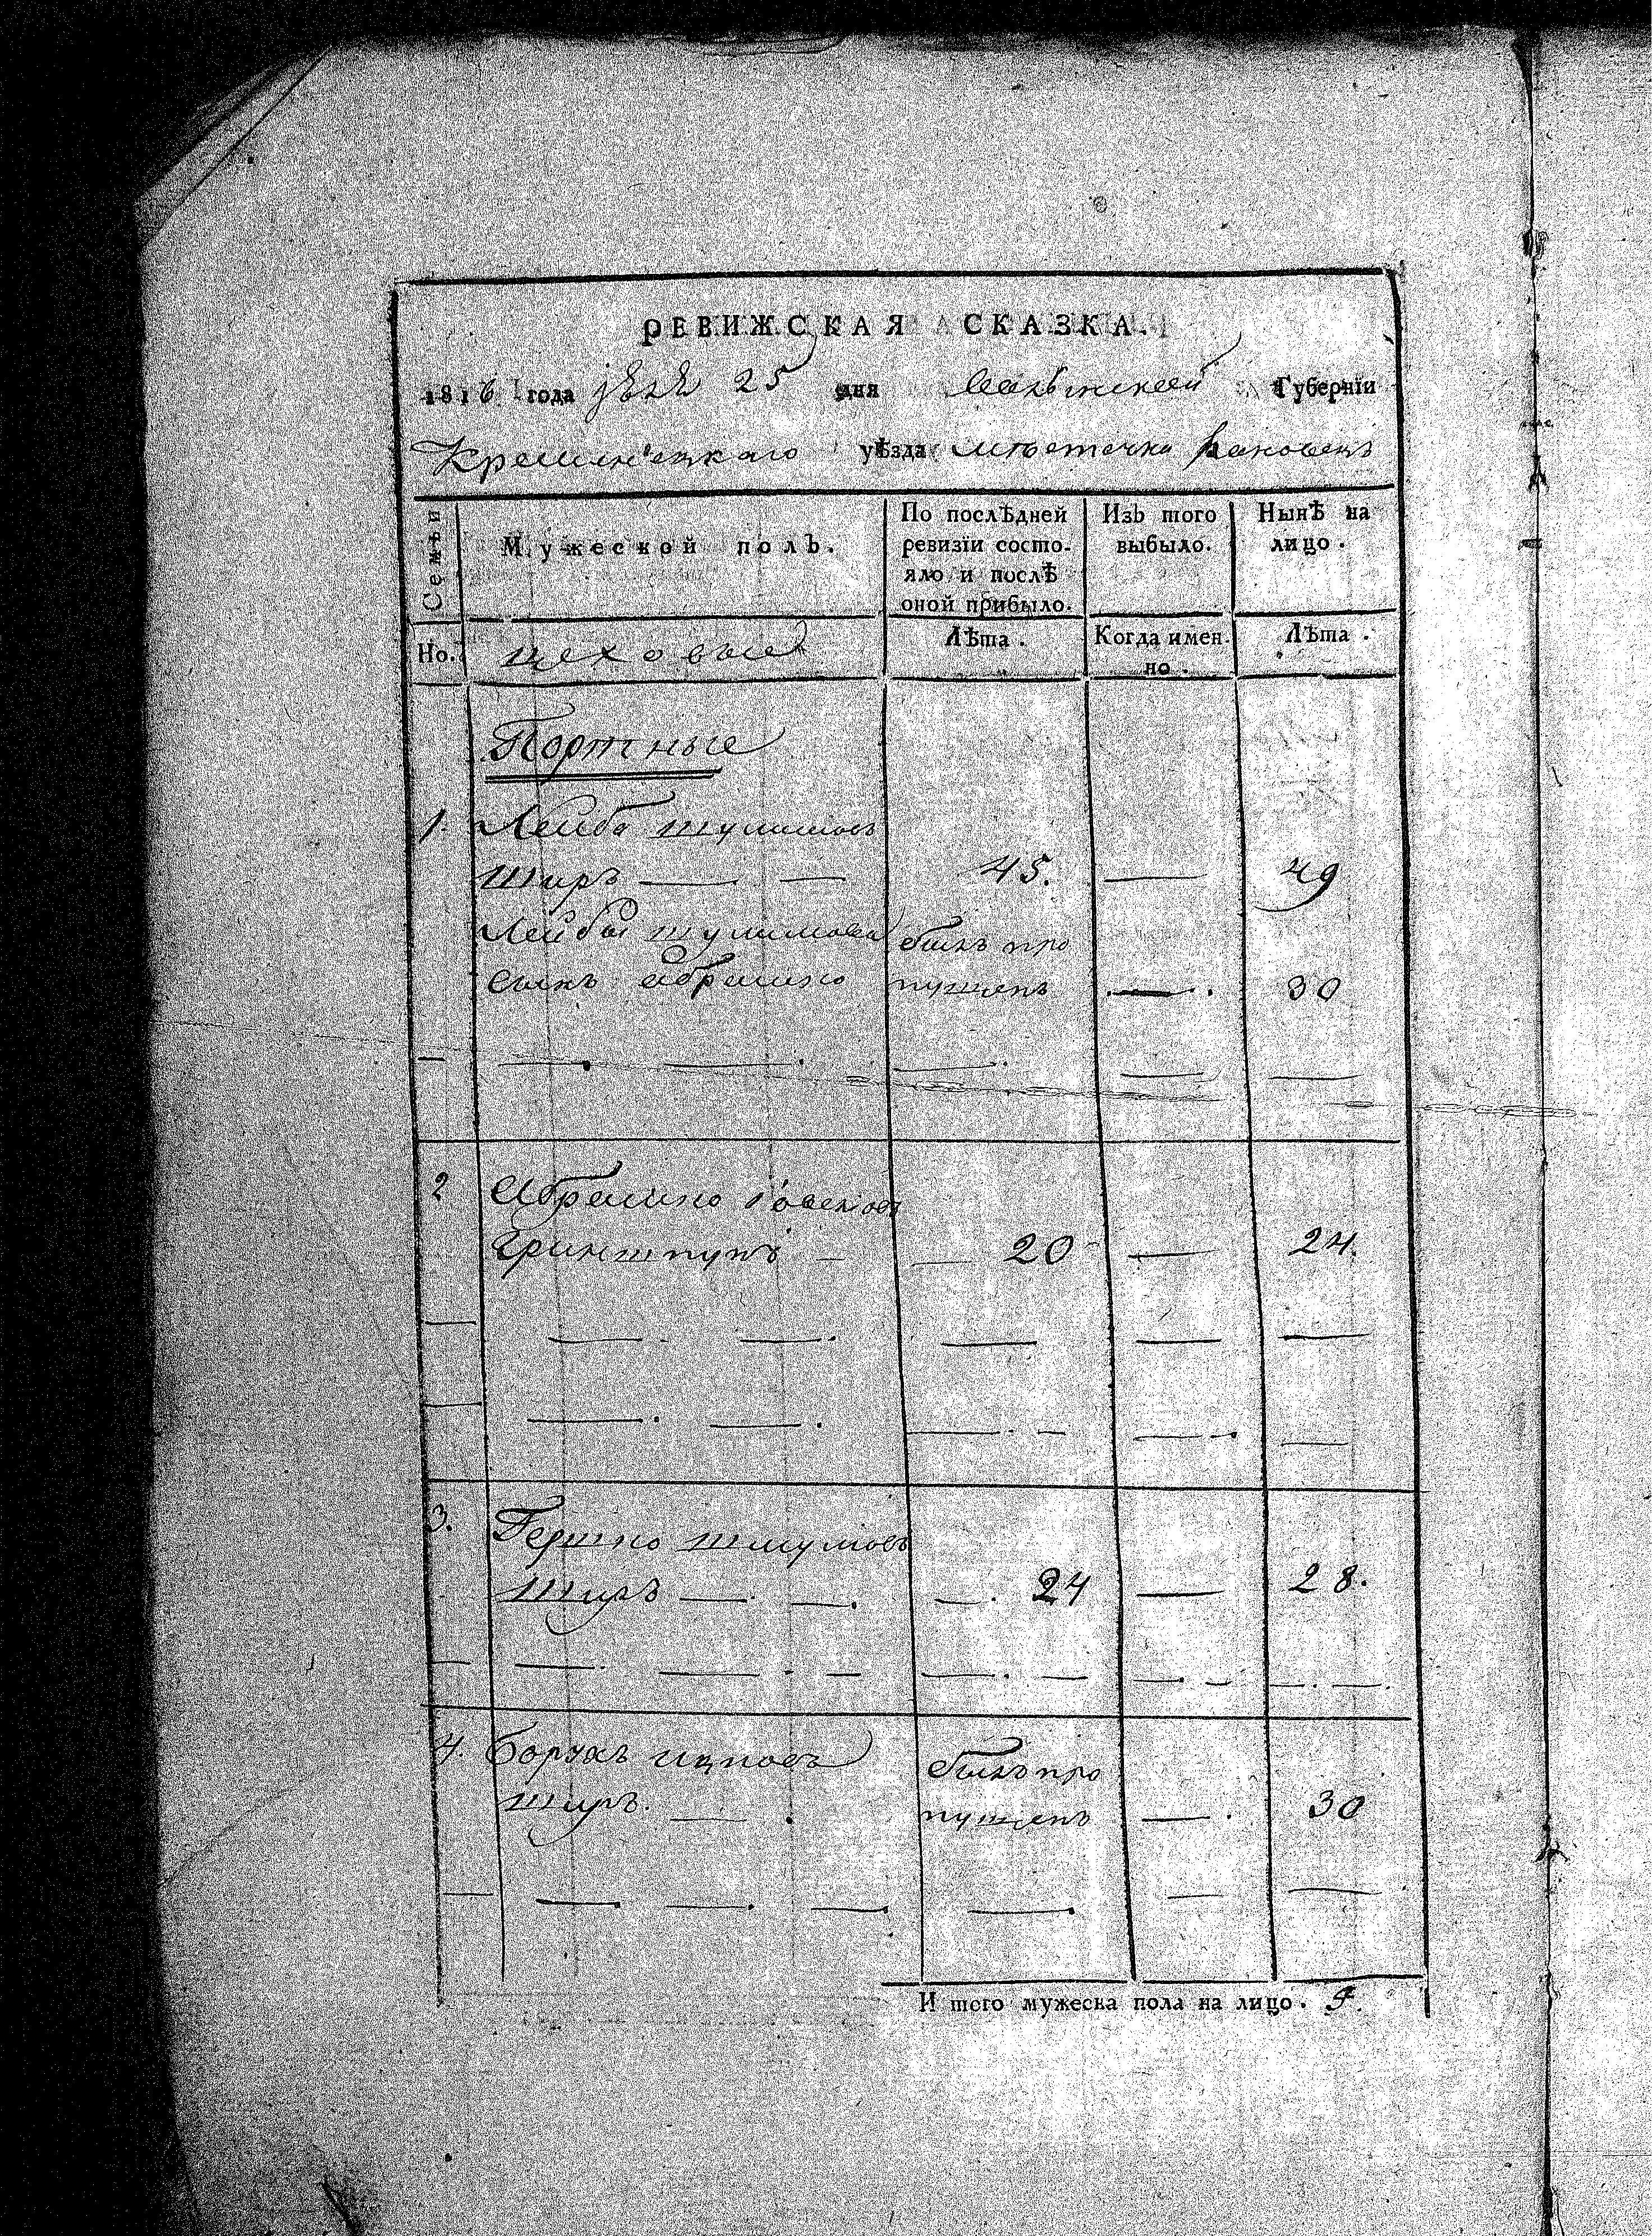 РЕВИЖСКАЯ СКАЗКА.
1816 года 25 дня Волынской Губерніи
Кременецкаго уѣзда мѣстечка
Семьи
Мужеской полъ.
По послѣдней ревизіи состо-
яло и послѣ
оной прибыло.
Изъ того
выбыло.
Нынѣ на
лицо.
Но.
цеховые
Лѣта.
Когда имен-
но.
Лѣта.
Портные
1. Лейба Шулимовъ
Ширъ — — 45. — 49
Лейбы Шулимова былъ про
сынъ Абрамко пущенъ — 30
2 Абрамко
Гриншпунъ — — 20 — 24.
3. Гершко Шмулювъ
Ширъ — — — 24 — 28.
4. Борухъ Ицковъ былъ про
Ширъ — пущенъ — 30
И того мужеска пола на лицо. 5.